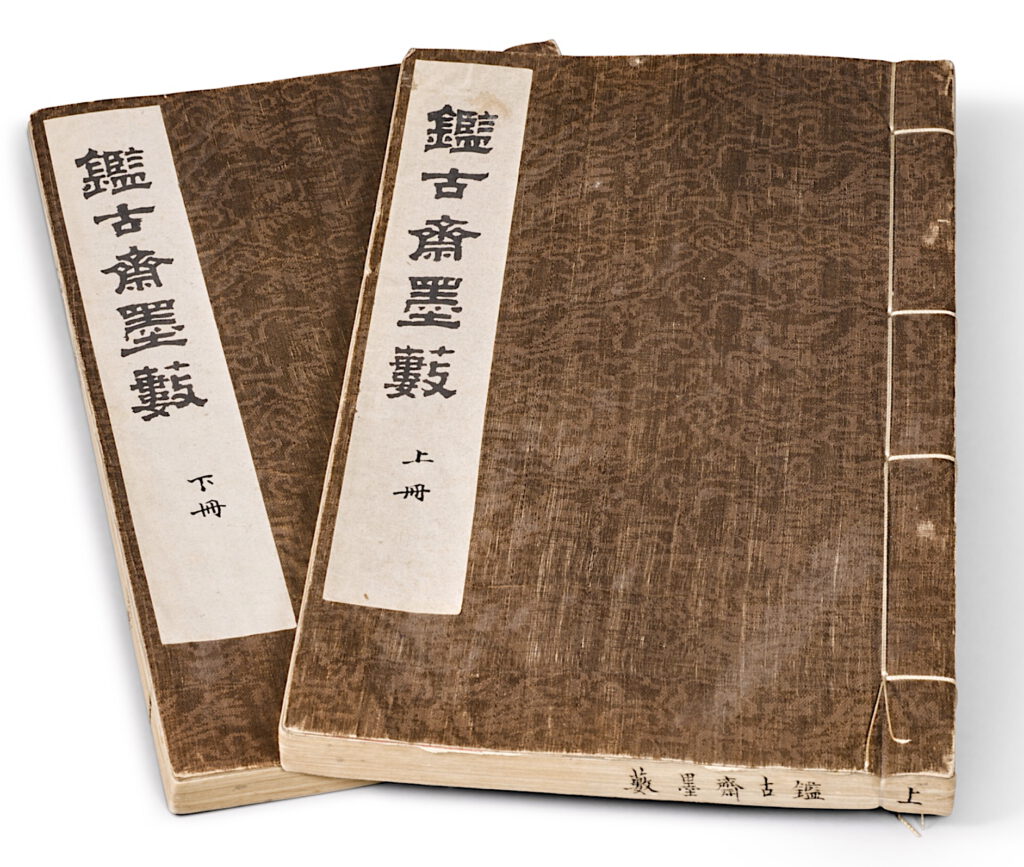 鑑古齋墨藪
上冊
鑑古齋墨藪
下冊
鑑古齋墨藪
上